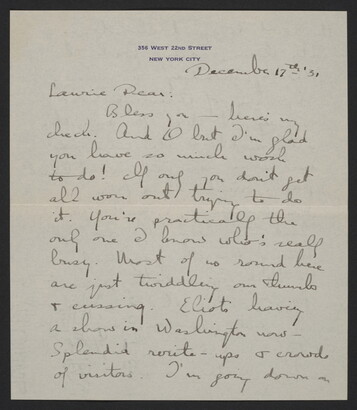 356 WEST 22ND STREET
NEW YORK CITY
December 17th '31
Lawrie Dear:
Bless you — here's my
check. And O but I'm glad
you have so much work
to do! If only you don't get
all worn out trying to do
it. You're practically the
only one I know who's really
busy. Most of us round here
are just twiddling our thumbs
& cussing. Eliot's having
a show in Washington now —
Splendid write-ups & crowds
of visitors. I'm going down on